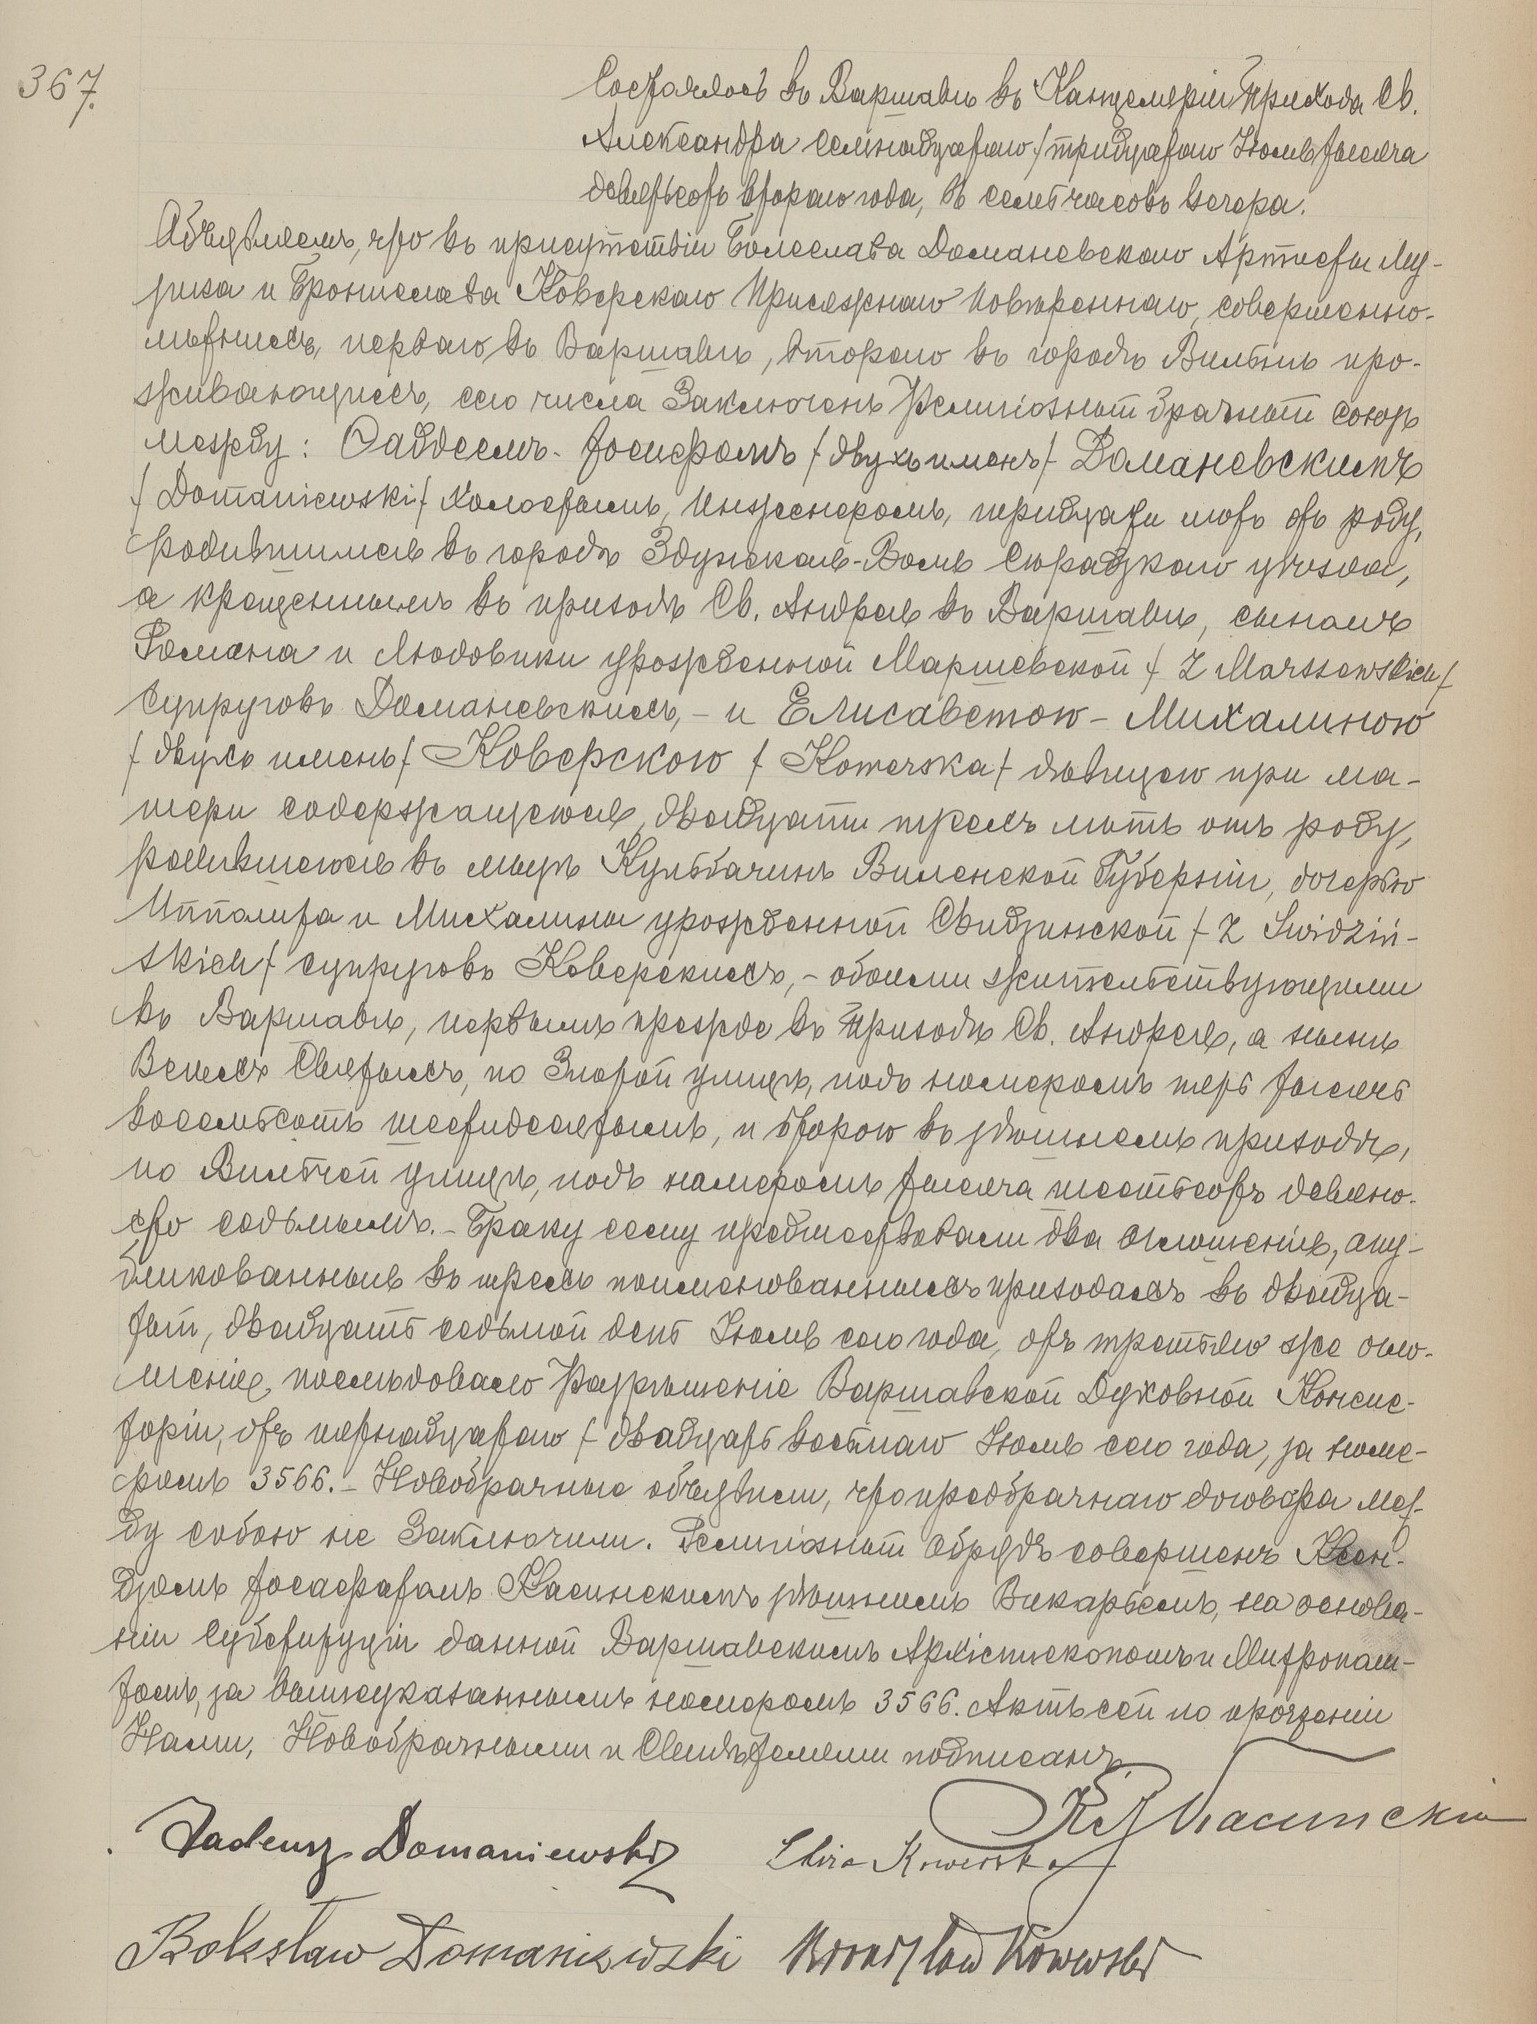 367.
Состоялось въ Варшавѣ въ Канцеляріи Прихода Св.
Александра семнадцатаго /тридцатаго Іюля тысяча
девятьсотъ втораго года, въ семь часовъ вечера.
Объявляемъ, что въ присутствіи Болеслава Доманевскаго Артисты Му-
зыка и Бронислава Коверскаго Присяжнаго Повѣреннаго, совершенно-
лѣтнихъ, перваго въ Варшавѣ, втораго въ городѣ Вильнѣ про-
живающихъ, сего числа Заключенъ Религіозный брачный союзъ
между: Фаддеемъ-Іосифомъ /двухъ именъ/ Доманевскимъ
/Domaniewski/ Холостымъ, Инженеромъ, тридцати лѣтъ отъ роду,
родившимся въ городѣ Здунская-Воля Сѣрадзкаго уѣзда,
а крещеннымъ въ приходѣ Св. Андрея въ Варшавѣ, сыномъ
Романа и Людовики урожденной Маршевской / Z Marszewskich/
супруговъ Доманевскихъ, - и Елисаветою - Михалиною
/двухъ именъ/ Коверскою / Kowerska/ дѣвицею при ма-
тери содержащеюся, двадцати трехъ лѣтъ отъ роду,
родившеюся въ мызѣ Культбачинъ Виленской Губерніи, дочерью
Ипполита и Михалины урожденной Свидзинской / Z Swidziń-
skich/ супруговъ Коверскихъ, - обоими жительствующими
въ Варшавѣ, первымъ прежде въ приходѣ Св. Андрея, а нынѣ
Всѣхъ Святыхъ, по Злотой улицѣ, подъ номеромъ
восемьсотъ шестидесятымъ, и второю въ здѣшнемъ приходѣ,
по Вильчей улицѣ, подъ номеромъ тысяча шестьсотъ девяно-
сто седьмымъ. - Браку сему предшествовали два оглашенія, опу-
бликованныя въ трехъ поименованныхъ приходахъ въ двадца-
тый, двадцать седьмой день Іюля сего года, отъ третьяго же огла-
шенія, послѣдовало Разрѣшеніе Варшавской Духовной Консис-
торіи, отъ пятнадцатаго / двадцать восьмаго Іюля сего года, за номе-
ромъ 3566. - Новобрачные объявили, что предбрачнаго договора меж-
ду собою не Заключили. Религіозный обрядъ совершенъ Ксен-
дзомъ Іосафатомъ Касинскимъ здѣшнимъ Викаріемъ, на основа-
ніи Субституціи данной Варшавскимъ Архіепископомъ и Митрополи-
томъ, за вышеуказаннымъ номеромъ 3566. Актъ сей по прочтеніи
Нами, Новобрачными и Свидѣтелями подписанъ.
Кс. І Касинскій
Tadeusz Domaniewski Kowerska
Bolesław Domaniewski Bronisław Kowerski